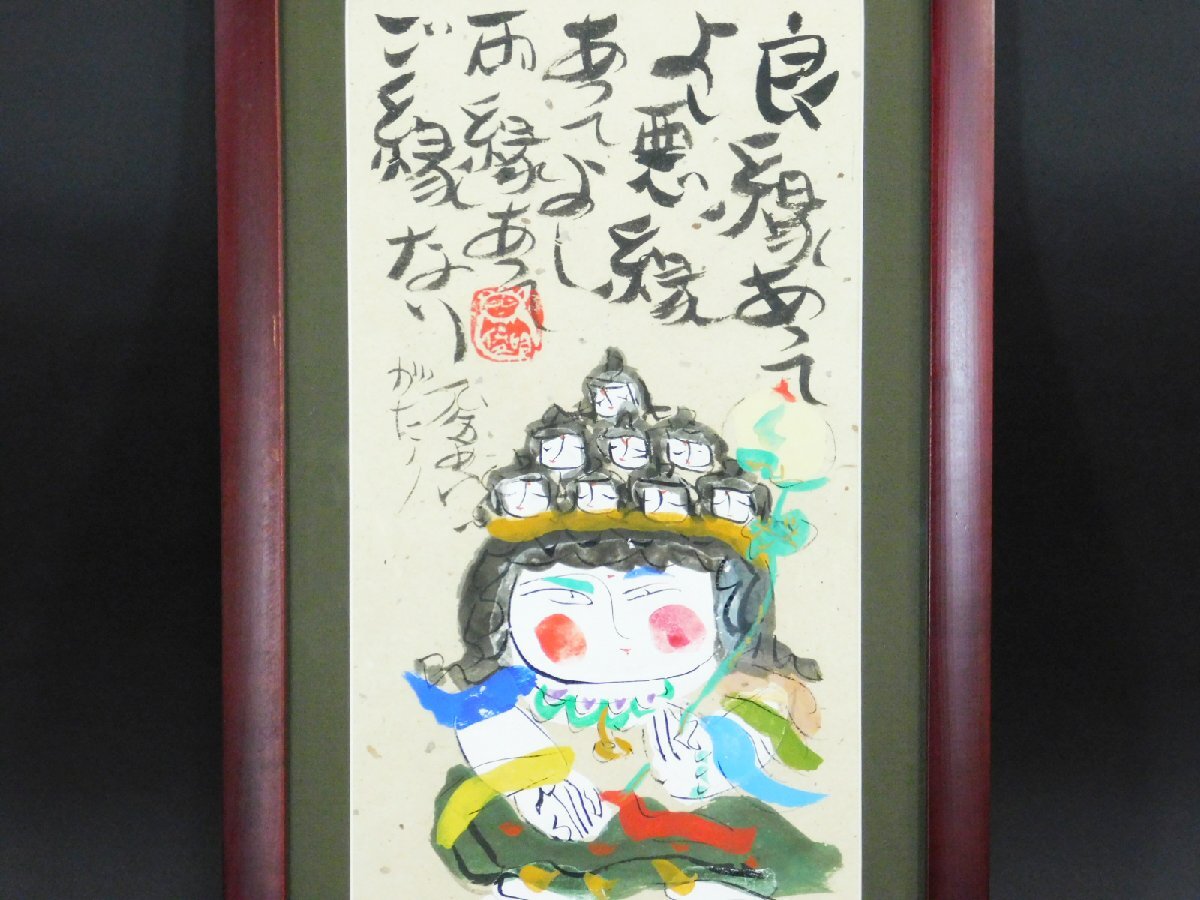 良縁あって
よし悪縁
あってよし
両縁あって
ご縁なり
がたり